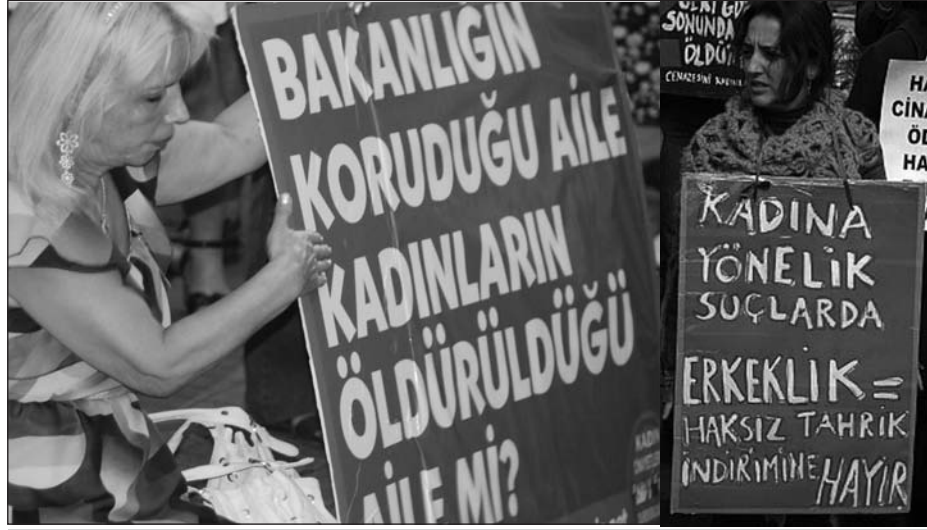 BAKANLIĞIN
KORUDUĞU AİLE
KADINLARIN
ÖLDÜRÜLDÜĞÜ
AİLE Mİ?
KADIN
SONUNDA
ÖLDÜ
CENAZESİNİ
HA
CİNA
ÖL
HA
KADINA
YÖNELİK
SUÇLARDA
ERKEKLİK =
HAKSIZ TAHRİK
İNDİRİMİNE HAYIR